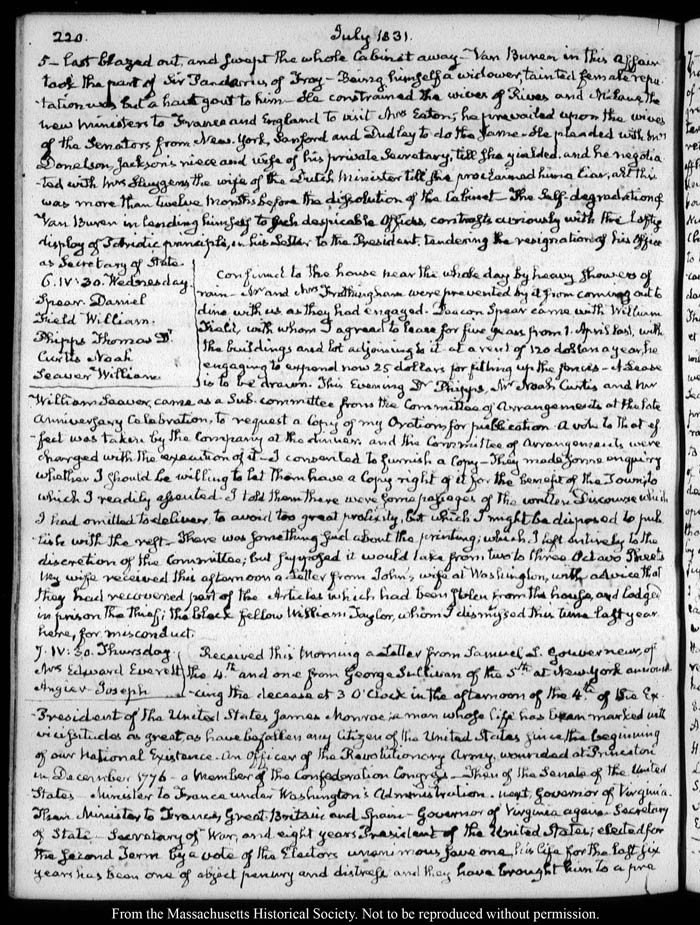 220.
July 1831.
5 – last blazed out, and swept the whole Cabinet away – Van Buren in this affair
took the part of Sir Pandarus of Troy – Being himself a widower, tainted female repu-
-tation was but a haut gout to him – He constrained the wives of Rives and McLane the
new Ministers to France and England to visit Mrs Eaton; he prevailed upon the wives
of the Senators from New-York, Sanford and Dudley to do the same – He pleaded with Mrs
Donelson, Jackson's niece and wife of his private Secretary, till she yielded, and he negotia-
-ted with Mrs Huygens the wife of the Dutch Minister till she proclaimed him a liar, all this
was more than twelve Months before the dissolution of the Cabinet – The Self-degradation of
Van Buren in lending himself to such despicable Offices, contrasts curiously with the lofty
display of Patriotic principle, in his Letter to the President, tendering the resignation of his Office
as Secretary of State.
6. IV:30. Wednesday.
Spear. Daniel
Field William.
Phipps Thomas Dr
Curtis Noah
Seaver William
Confined to the house near the whole day by heavy showers of
rain – Mr and Mrs Frothingham were prevented by it from coming out to
dine with us as they had engaged. Deacon Spear came with William
Field, with whom I agreed to lease for five years from 1. April last, with
the buildings and lot adjoining to it at a rent of 120 dollars a year, he
engaging to expend now 25 dollars for fitting up the fences – A Lease
is to be drawn. This Evening Dr Phipps, Mr Noah Curtis and Mr
William Seaver, came as a Sub-committee from the Committee of Arrangements at the late
Anniversary Celebration, to request a Copy of my Oration for publication. A vote to that ef-
-fect was taken by the Company at the dinner, and the Committee of Arrangements were
charged with the execution of it – I consented to furnish a Copy – They made some enquiry
whether I should be willing to let them have a Copy right of it for the benefit of the Town, to
which I readily assented. I told them there were some passages of the written Discourse which
I had omitted to deliver, to avoid too great prolixity, but which I might be disposed to pub-
lish with the rest – There was something said about the printing; which I left entirely to the
discretion of the Committee; but supposed it would take from two to three Octavo Sheets
My wife received this afternoon a Letter from John's wife at Washington, with advice that
they had recovered part of the Articles which had been stolen from the house, and lodged
in prison the thief; the black fellow William Taylor, whom I dismissed this time last year
here, for misconduct.
7. IV:30. Thursday.
Mrs Edward Everett
Angier. Joseph
Received this Morning a Letter from Samuel L. Gouverneur, of
the 4th and one from George Sullivan of the 5th at New York announ-
-cing the decease at 3 O'Clock in the afternoon of the 4th of the Ex-
-President of the United States James Monroe: a man whose life has been marked with
vicissitudes as great as have befallen any Citizen of the United States since the beginning
of our National Existence. An Officer of the Revolutionary Army, wounded at Princeton
in December 1776 – a Member of the Confederation Congress – Then of the Senate of the United
States – Minister to France under Washington's Administration. next, Governor of Virginia.
Then Minister to France, Great Britain and Spain – Governor of Virginia again. Secretary
of State – Secretary of War, and eight years President of the United States; elected for
the Second Term by a vote of the Electors unanimous save one, his life for the last six
years has been one of abject penury and distress, and they have brought him to a pre
From the Massachusetts Historical Society. Not to be reproduced without permission.